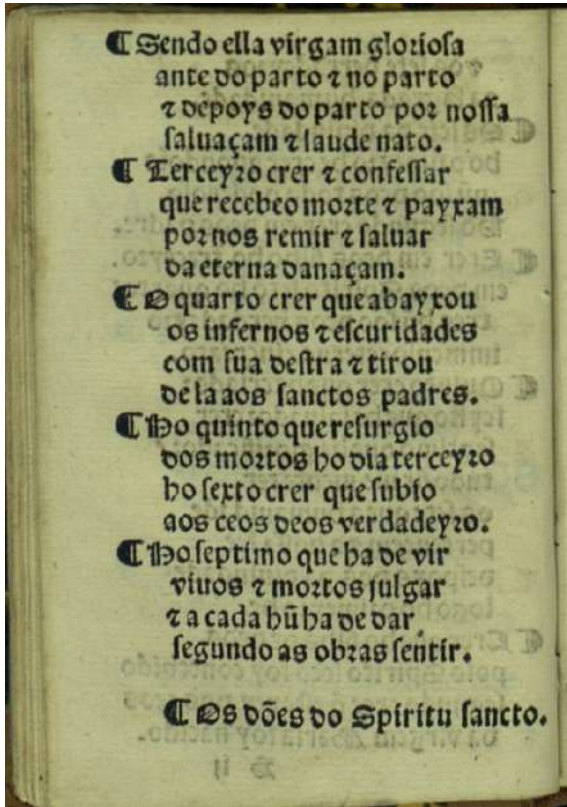 ¶ Sendo ella virgam gloriosa
ante do parto ⁊ no parto
⁊ depoys do parto por nossa
saluaçam ⁊ laude nato.
¶ Terceyro crer ⁊ confessar
que recebeo morte ⁊ payxam
por nos remir ⁊ saluar
da eterna danaçam.
¶ O quarto crer que abayxou
os infernos ⁊ escuridades
com sua destra ⁊ tirou
de la aos sanctos padres.
¶ Ho quinto que resurgio
dos mortos ho dia terceyro
ho sexto crer que subio
aos ceos deos verdadeyro.
¶ Ho septimo que ha de vir
viuos ⁊ mortos julgar
⁊ a cada hũ ha de dar
segundo as obras sentir.
¶ Os dões do Spiritu sancto.